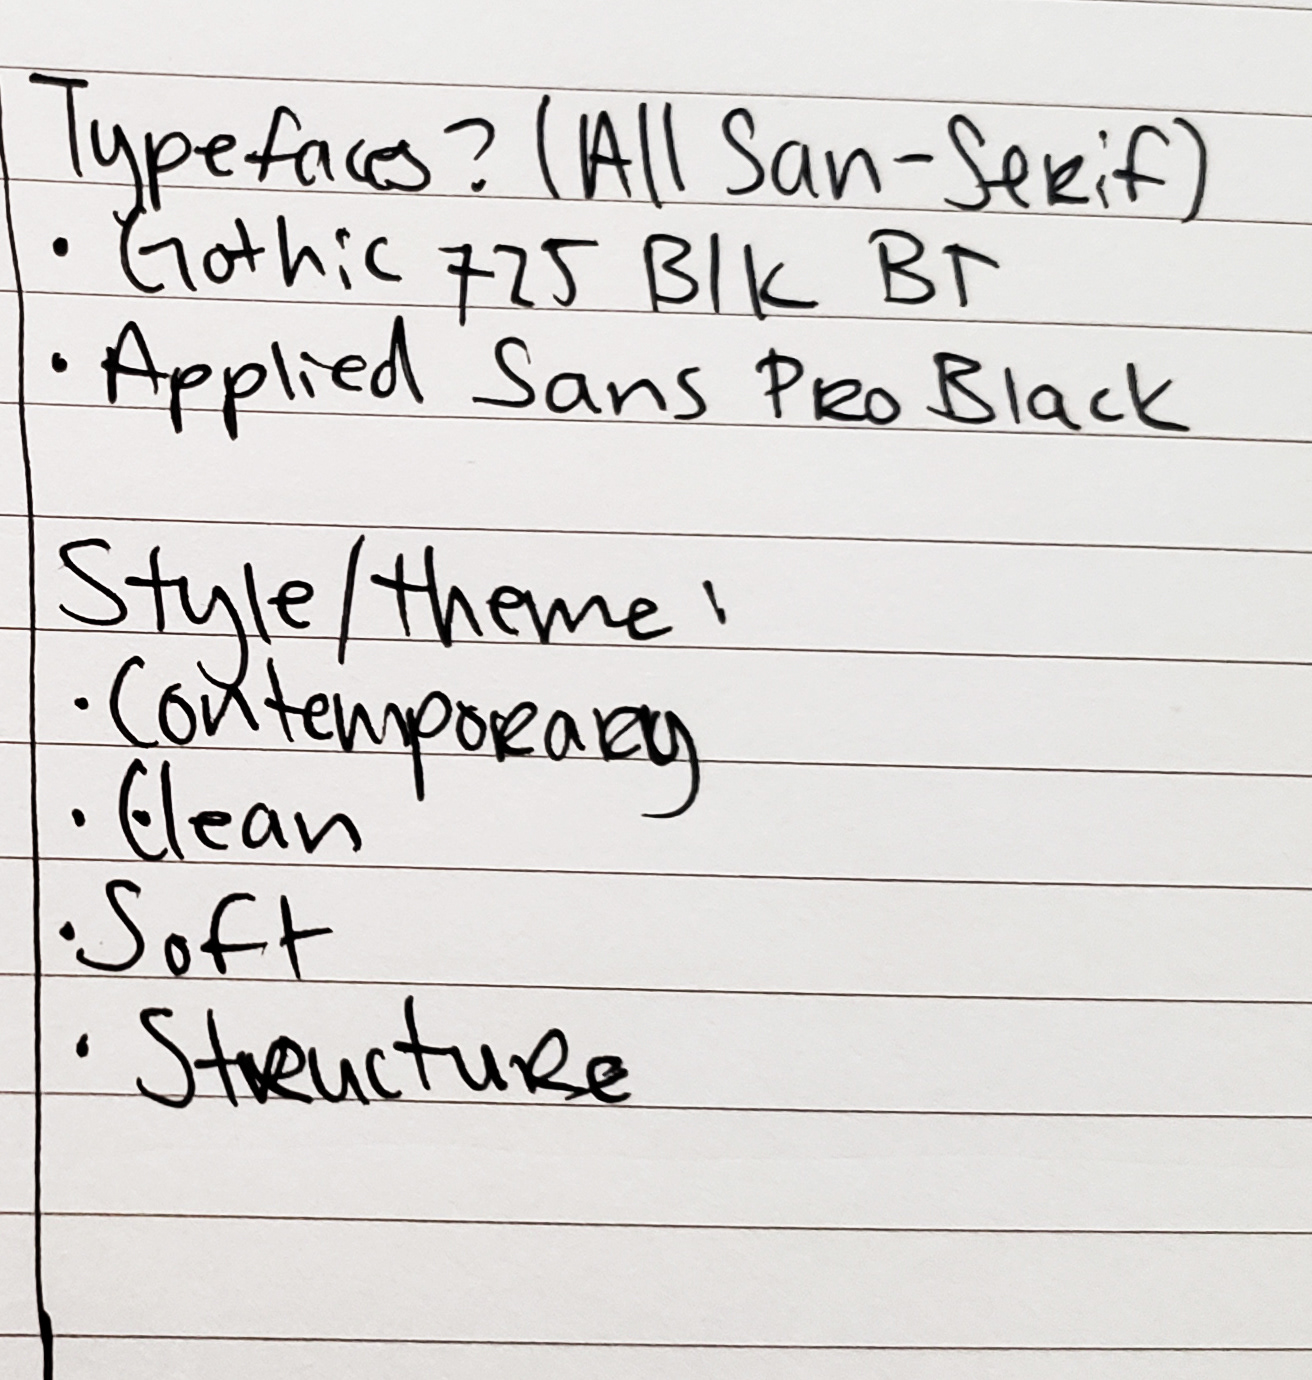 Typefaces? (All San-Serif)
• Gothic 725 Blk BT
• Applied Sans Pro Black
Style/theme:
• Contemporary
• Clean
• Soft
• Structure